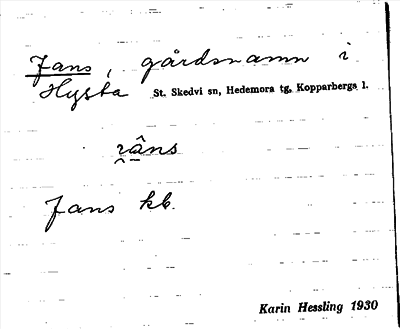 Jans, gårdsnamn i
Hysta St. Skedvi sn, Hedemora tg, Kopparbergs l.
Jans kb.
Karin Hessling 1930